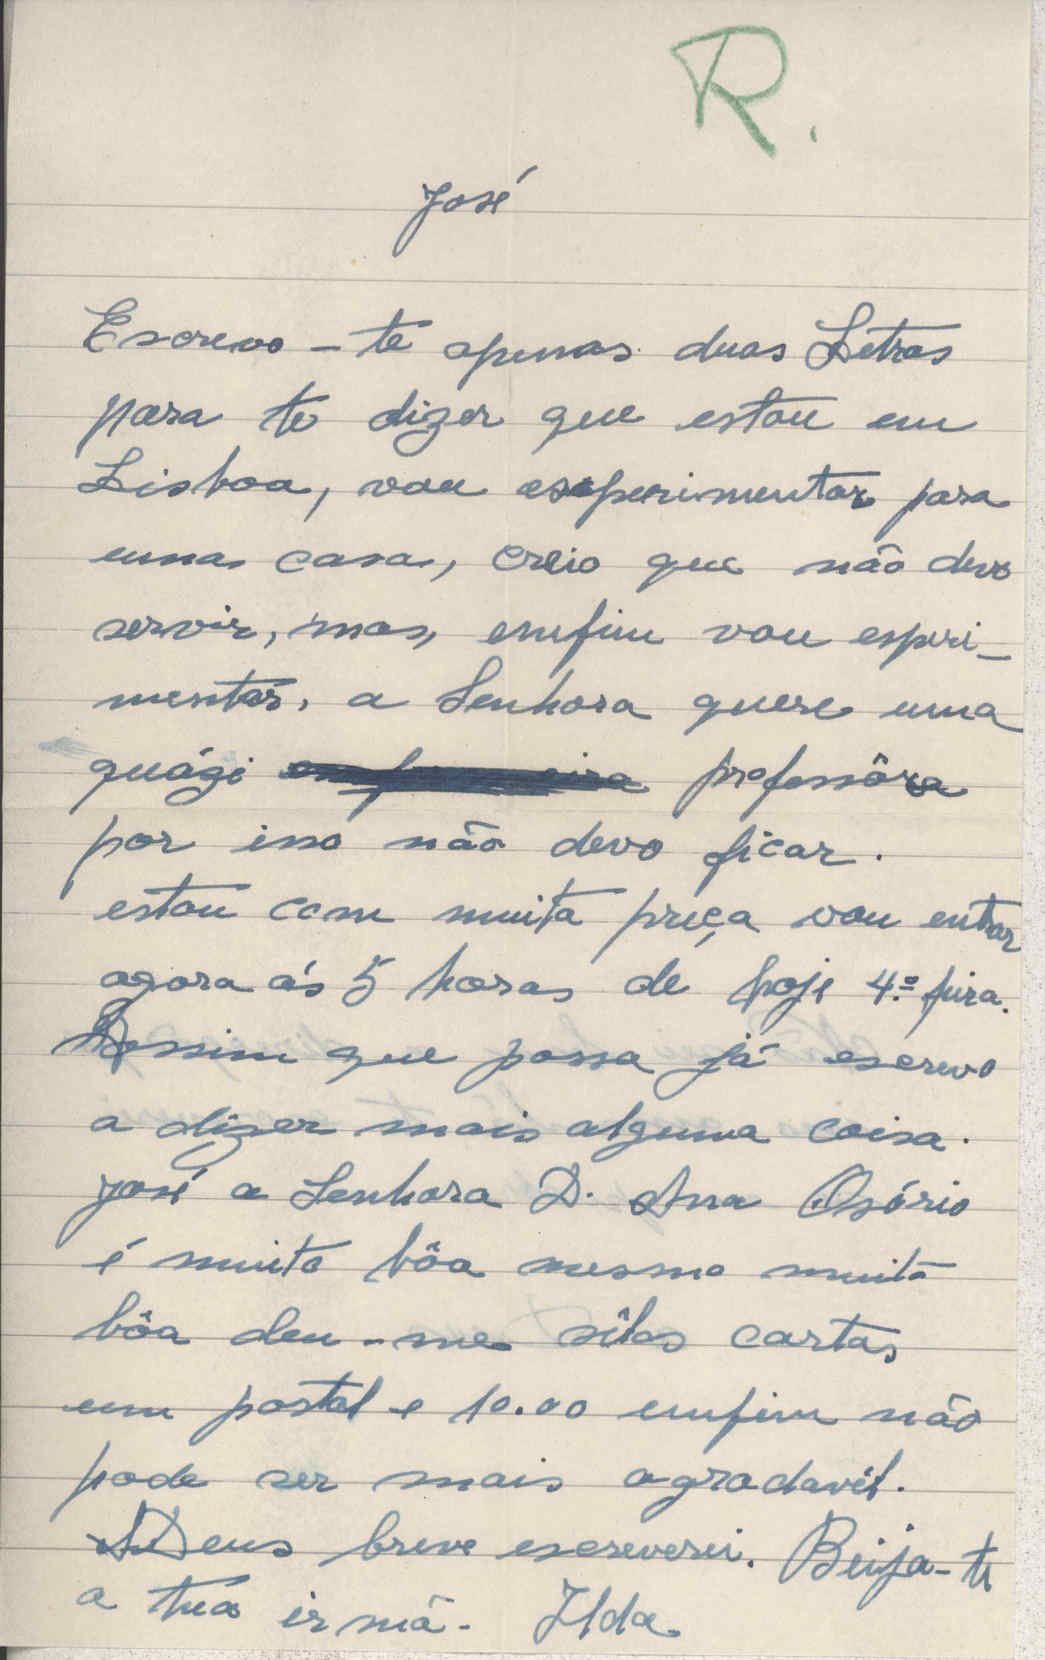 R.
José
Escrevo-te apenas duas Letras
para te dizer que estou em
Lisboa, vou esperimentar para
uma casa, creio que não devo
servir, mas, emfim vou esperi-
mentar, a Senhora quere uma
quági professôra
por isso não devo ficar.
estou com muita preça vou entrar
agora ás 5 horas de hoje 4.ª feira.
Assim que possa já escrevo
a dizer mais alguma coisa.
José a Senhora D. Ana Osório
é muito bôa mesmo muito
bôa deu-me sêlos cartas
um postal e 10.00 emfim não
pode ser mais agradavél.
ADeus breve escreverei. Beija-te
a tua irmã. Ilda.